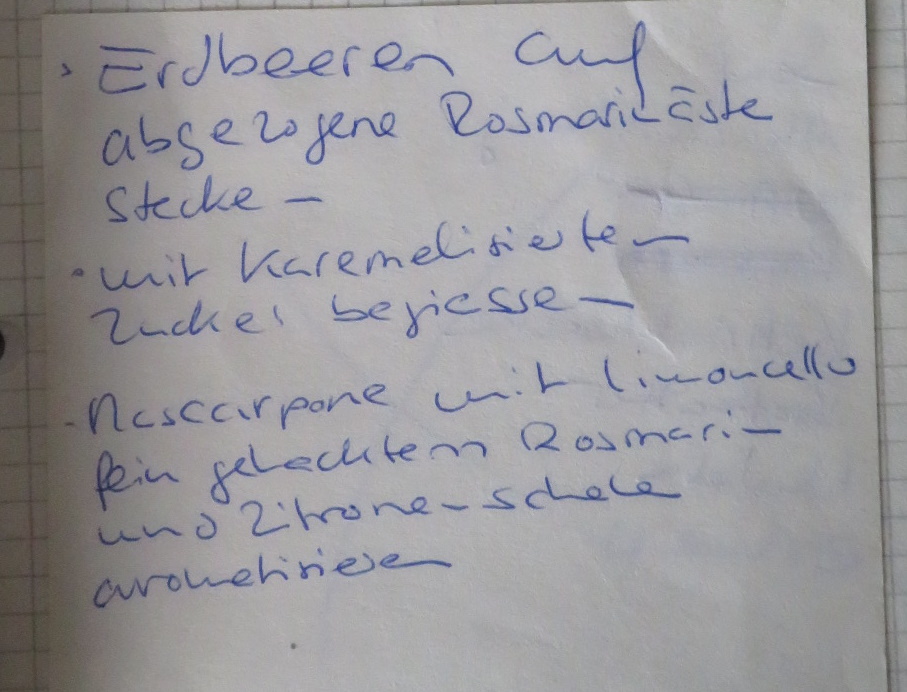 · Erdbeeren auf
abgezogene Rosmarin Äste
stecken
· mit karamelisierten
Zucker begiessen
- Mascarpone mit Limoncello
fein gehacktem Rosmarin
und Zitronen-schale
aromatisieren